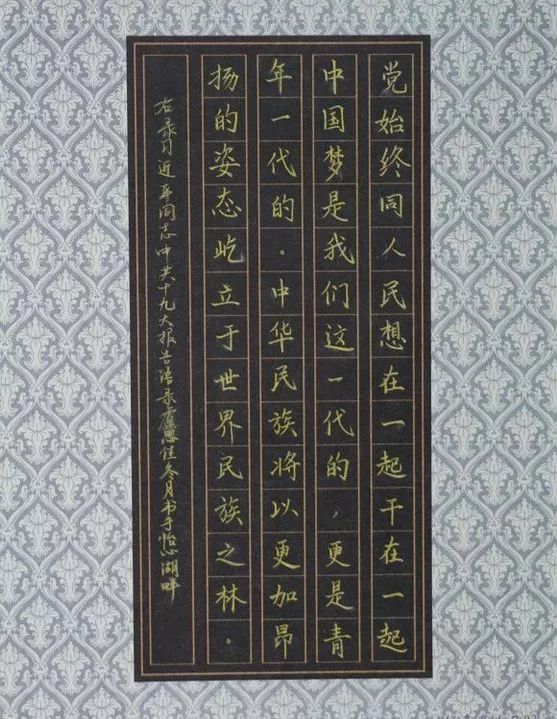 党始终同人民想在一起干在一起
中国梦是我们这一代的，更是青
年一代的。中华民族将以更加昂
扬的姿态屹立于世界民族之林。
右录习近平同志中共十九大报告语录思佳冬月书于怡心湖畔